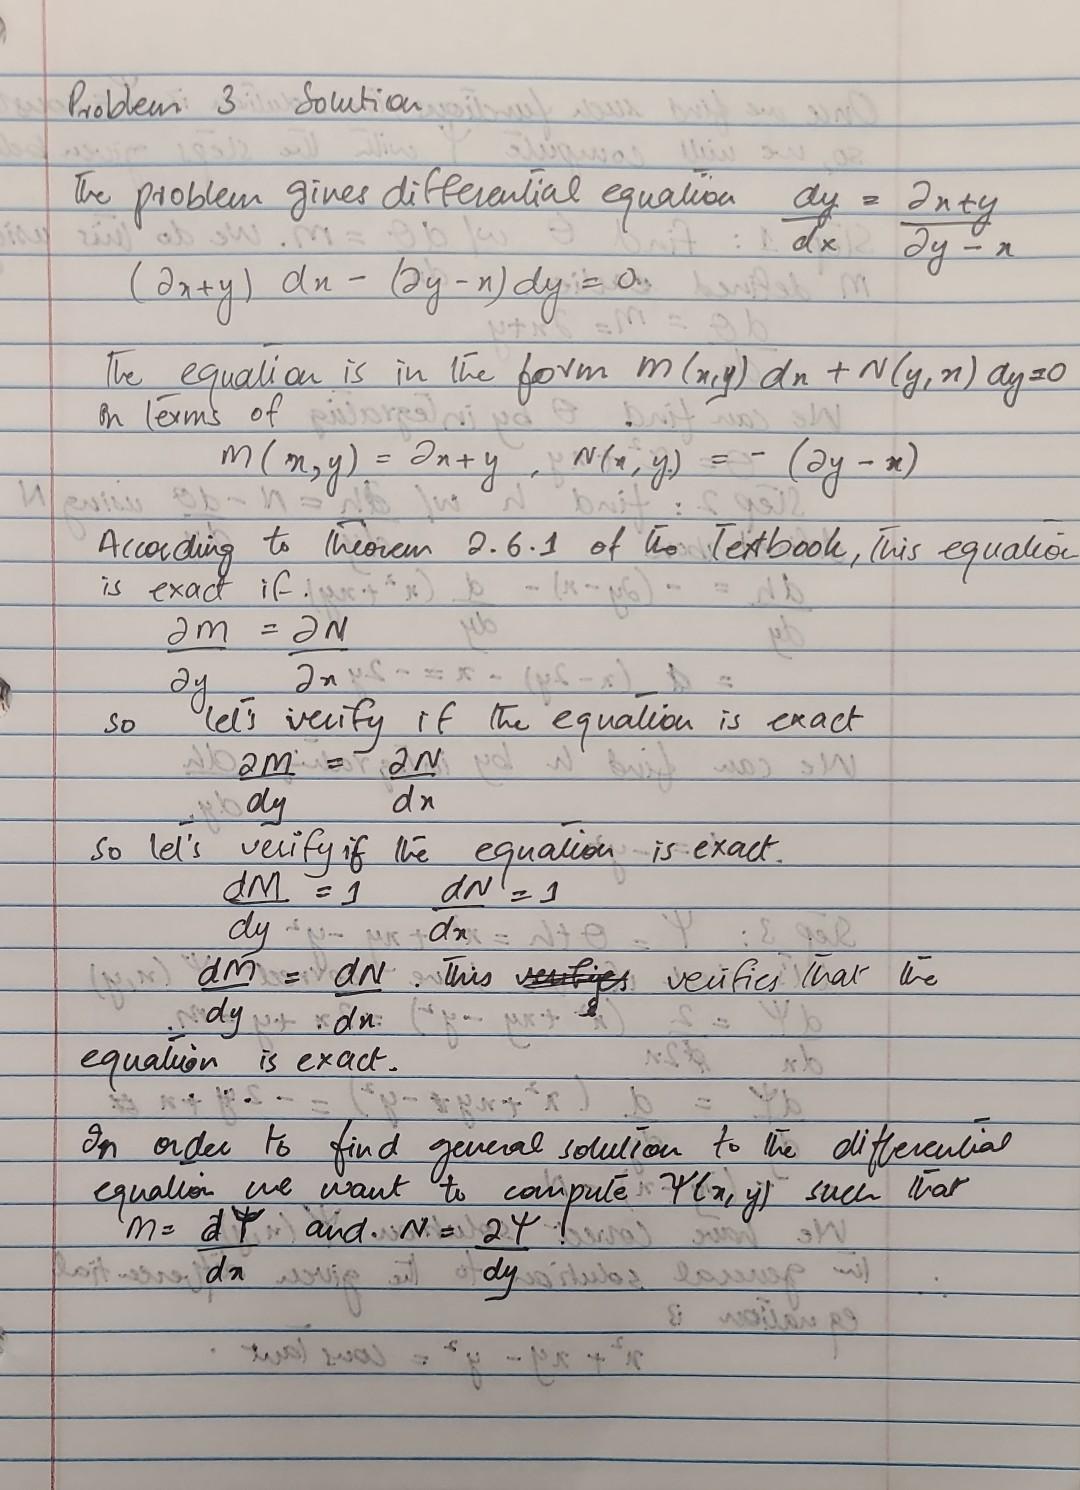 Problem 3 Solution
The problem gives differential equation dy/dx = 2x+y/2y-x
(2x+y) dx - (2y-x) dy = 0.
The equation is in the form M(x,y) dx + N(y,x) dy=0
in terms of
M(x,y) = 2x+y, N(x,y) = - (2y-x)
According to theorem 2.6.1 of the Textbook, this equation
is exact if.
∂M/∂y = ∂N/∂x
so let's verify if the equation is exact
∂M/dy = ∂N/dx
so let's verify if the equation is exact.
dM/dy = 1 dN/dx = 1
dM/dy = dN/dx. This verifies that the
equation is exact.
In order to find general solution to the differential
equation we want to compute Ψ(x,y) such that
M = dΨ/dx and. N = ∂Ψ/dy